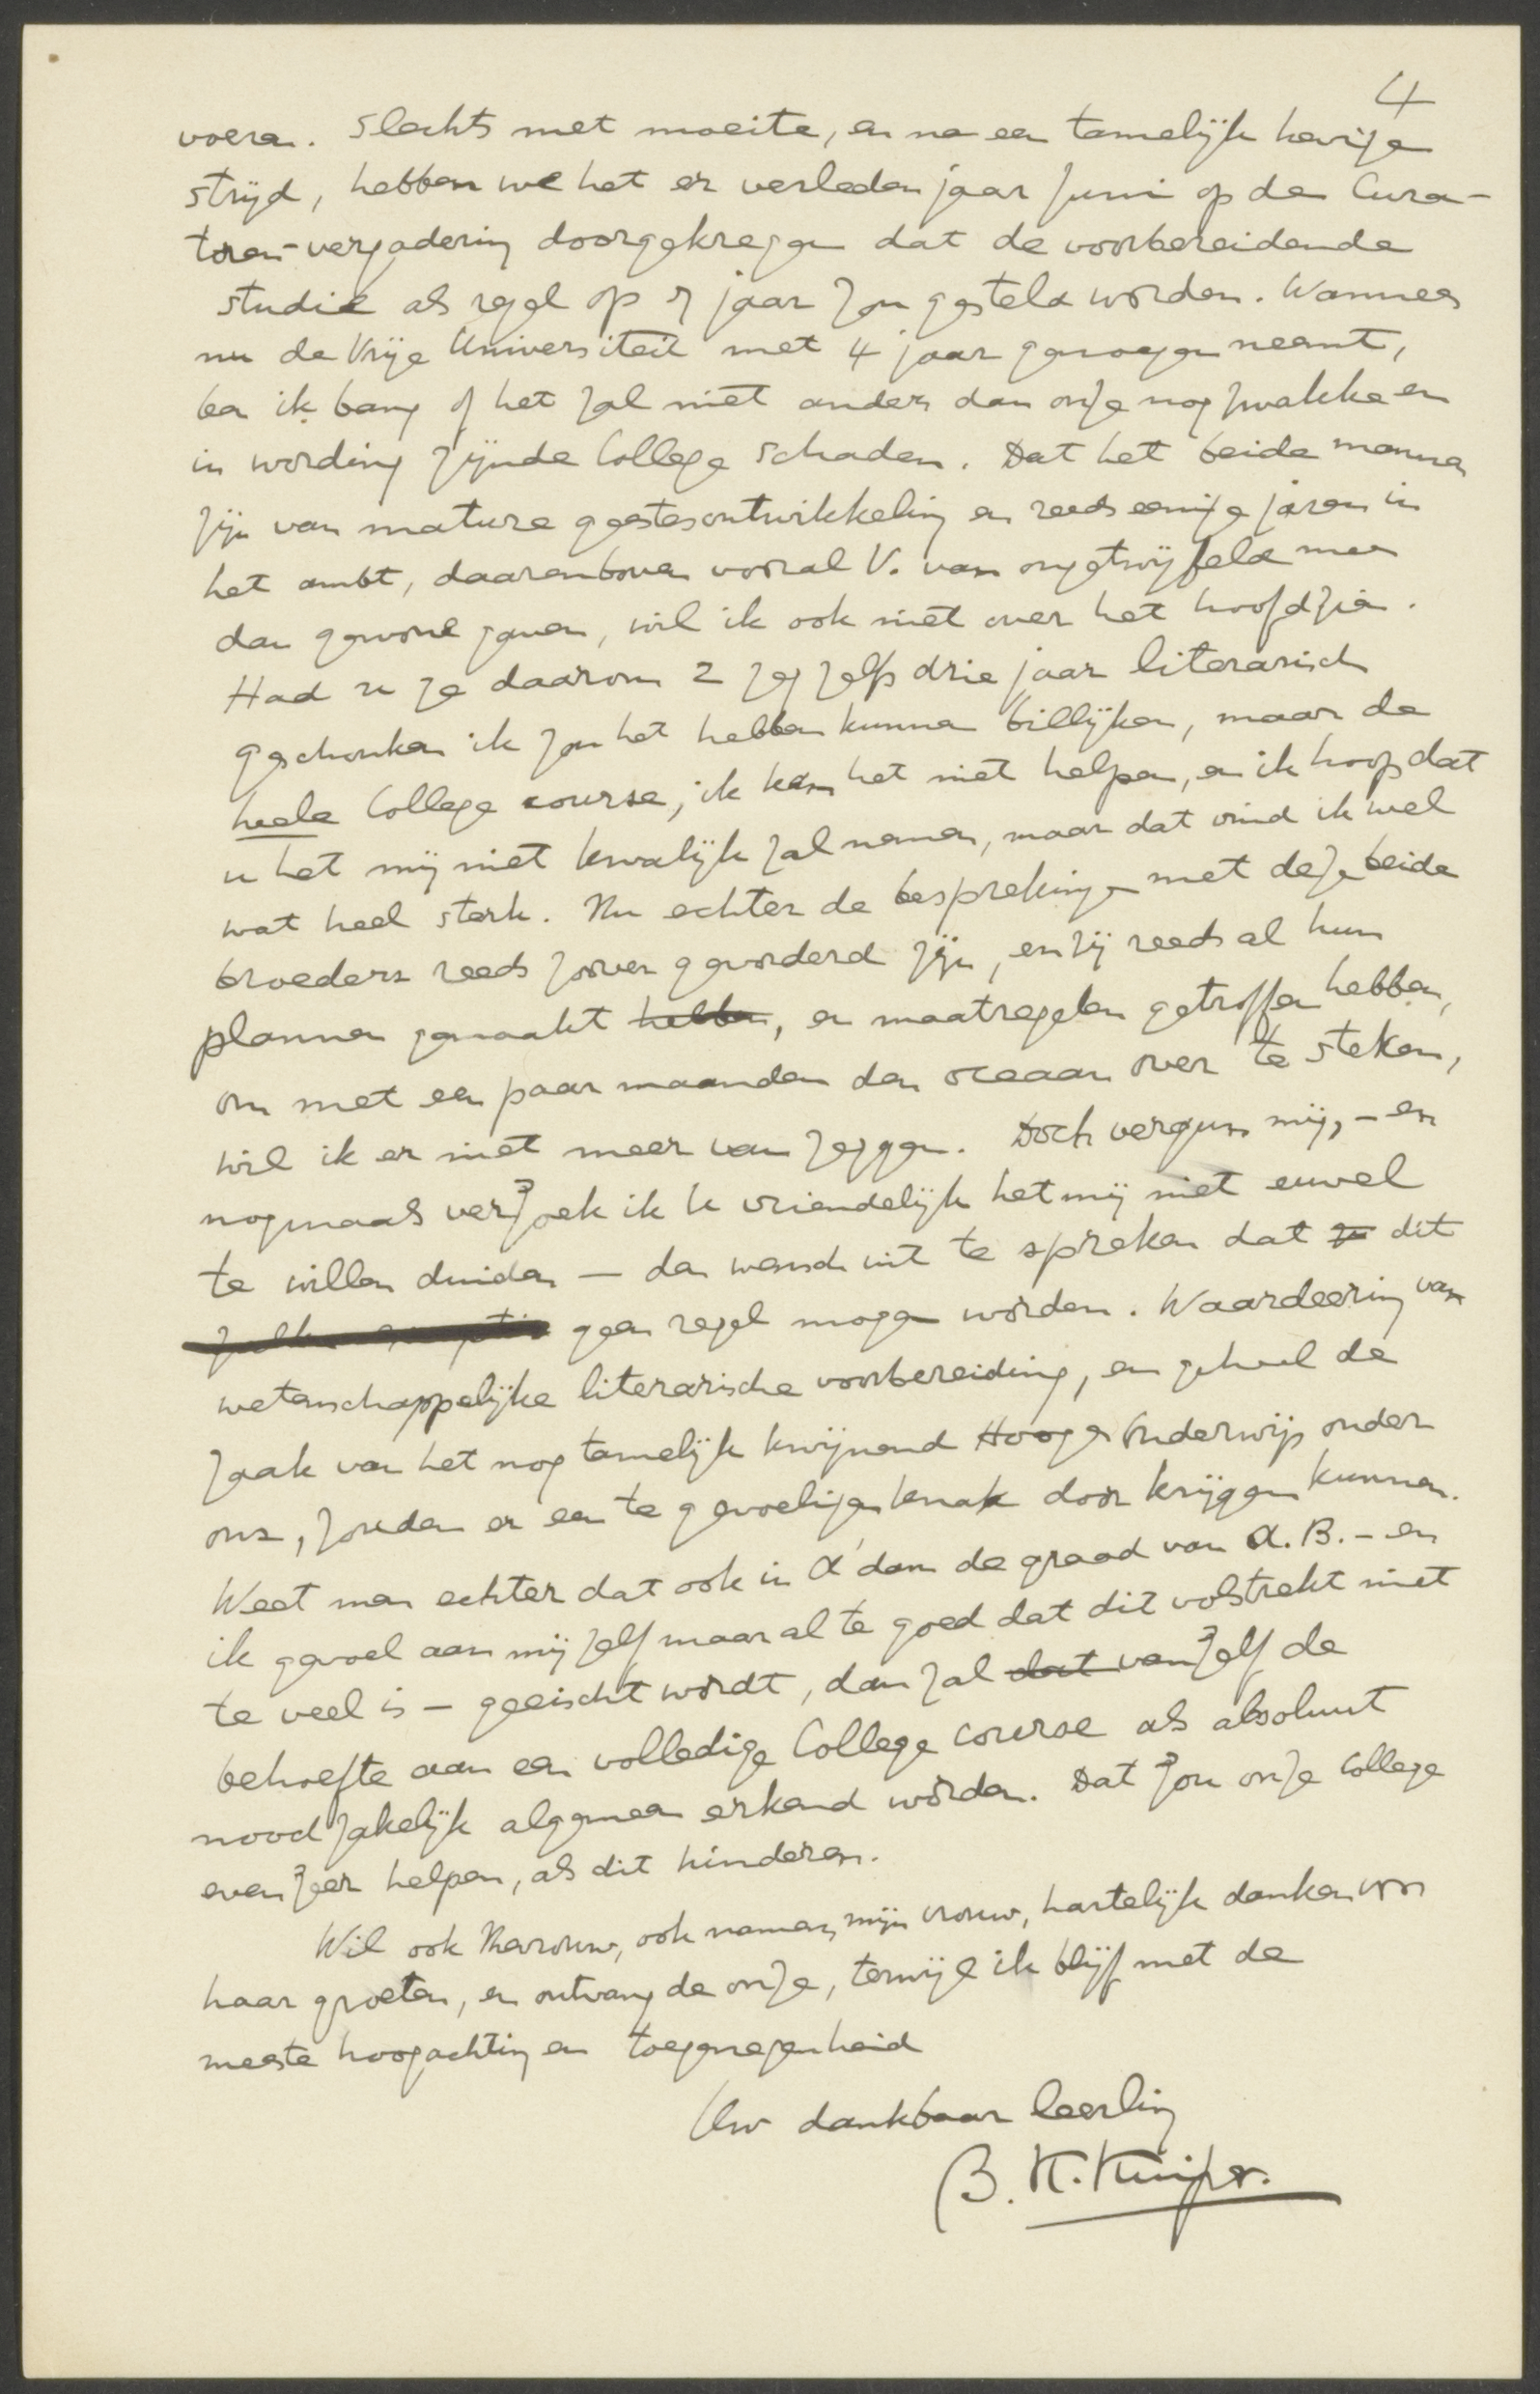 4
voeren. Slechts met moeite, en na een tamelijk hevigen
strijd, hebben we het er verleden jaar Juni op de Cura-
toren-vergadering doorgekregen dat de voorbereidende
studie als regel op 7 jaar zou gesteld worden. Wanneer
nu de Vrije Universiteit met 4 jaar genoegen neemt,
ben ik bang of het zal niet anders dan onze nog zwakke en
in wording zijnde College schaden. Dat het beide mannen
zijn van mature geestesontwikkeling en reeds eenige jaren in
het ambt, daarenboven vooral V. van ongetwijfeld meer
dan gewone gaven, wil ik ook niet over het hoofd zien.
Had u ze daarom 2 zeg zelfs drie jaar literarisch
geschonken ik zou het hebben kunnen billijken, maar de
heele College course, ik kan het niet helpen, en ik hoop dat
u het mij niet kwalijk zal nemen, maar dat vind ik wel
wat heel sterk. Nu echter de besprekingen met deze beide
broeders reeds zoover gevorderd zijn, en zij reeds al hun
plannen gemaakt hebben, en maatregelen getroffen hebben,
om met een paar maanden den oceaan over te steken,
wil ik er niet meer van zeggen. Doch vergun mij, - en
nogmaals verzoek ik U vriendelijk het mij niet euvel
te willen duiden — den wensch uit te spreken dat dit
geen regel moge worden. Waardeering van
wetenschappelijke literarische voorbereiding, en geheel de
zaak van het nog tamelijk kwijnend Hooger Onderwijs onder
ons, zouden er een te gevoeligen knak door krijgen kunnen.
Weet men echter dat ook in A'dam de graad van A.B. - en
ik gevoel aan mij zelf maar al te goed dat dit volstrekt niet
te veel is - geëischt wordt, dan zal dat van zelf de
behoefte aan een volledige College course als absoluut
noodzakelijk algemeen erkend worden. Dat zou onze College
even zeer helpen, als dit hinderen.
Wil ook Mevrouw, ook namens mijn vrouw, hartelijk danken voor
haar groeten, en ontvang de onze, terwijl ik blijf met de
meeste hoogachting en toegenegenheid
Uw dankbaar leerling
B. K. Kuiper.